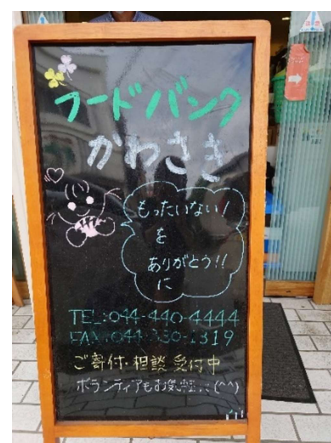 フードバンク
かわさき
もったいない!
を
ありがとう!!
に
TEL:044-440-4444
FAX:044-330-1319
ご寄付・相談 受付中
ボランティアもお気軽に(^^)